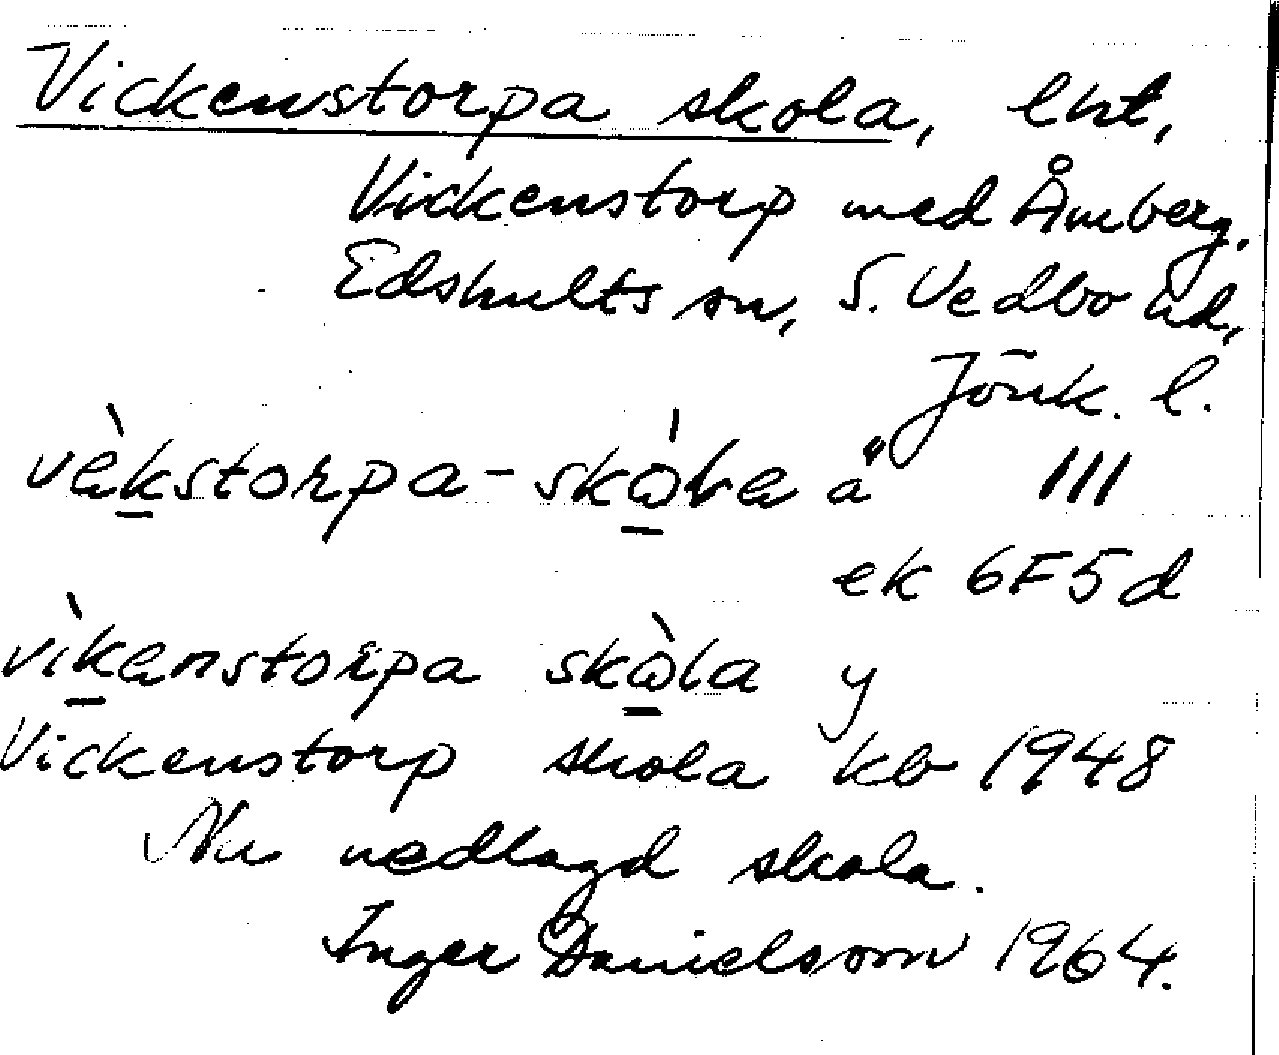 Vickenstorpa skola, lht,
Vickenstorp med Åmberg.
Edshults sn, S. Vedbo hd,
Jönk. l.
vèkstorpa-skòla ä 111
ek 6F5d
vìkenstorpa skòla y
Vickenstorp skola kb 1948
Nu nedlagd skola.
Inger Danielsson 1964.